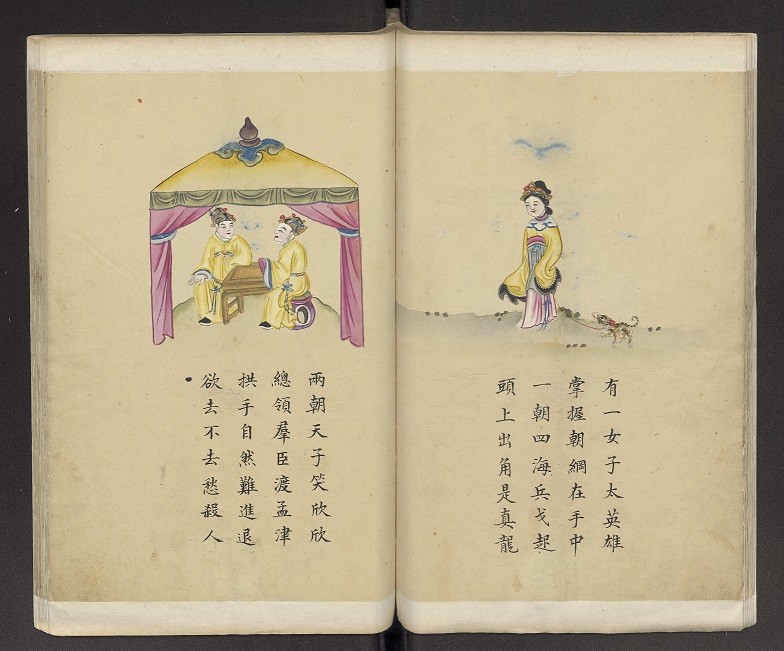 有一女子太英雄
掌握朝綱在手中
一朝四海兵戈起
頭上出角是真龍
兩朝天子笑欣欣
總領羣臣渡孟津
拱手自然難進退
欲去不去愁殺人